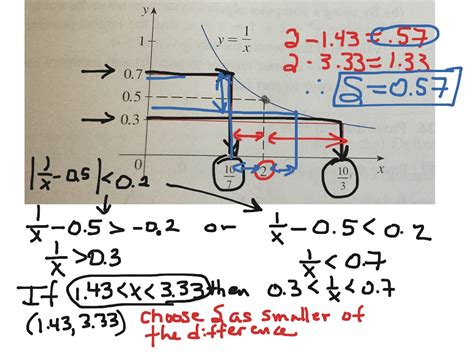 y
1
y = 1/x
2 - 1.43 = .57
2 - 3.33 = 1.33
∴ δ = 0.57
0.7
0.5
0.3
0
10/7
2
10/3
x
|1/x - 0.5| < 0.2
1/x - 0.5 > -0.2 or 1/x - 0.5 < 0.2
1/x > 0.3
1/x < 0.7
If 1.43 < x < 3.33 then 0.3 < 1/x < 0.7
(1.43, 3.33) choose δ as smaller of
the difference